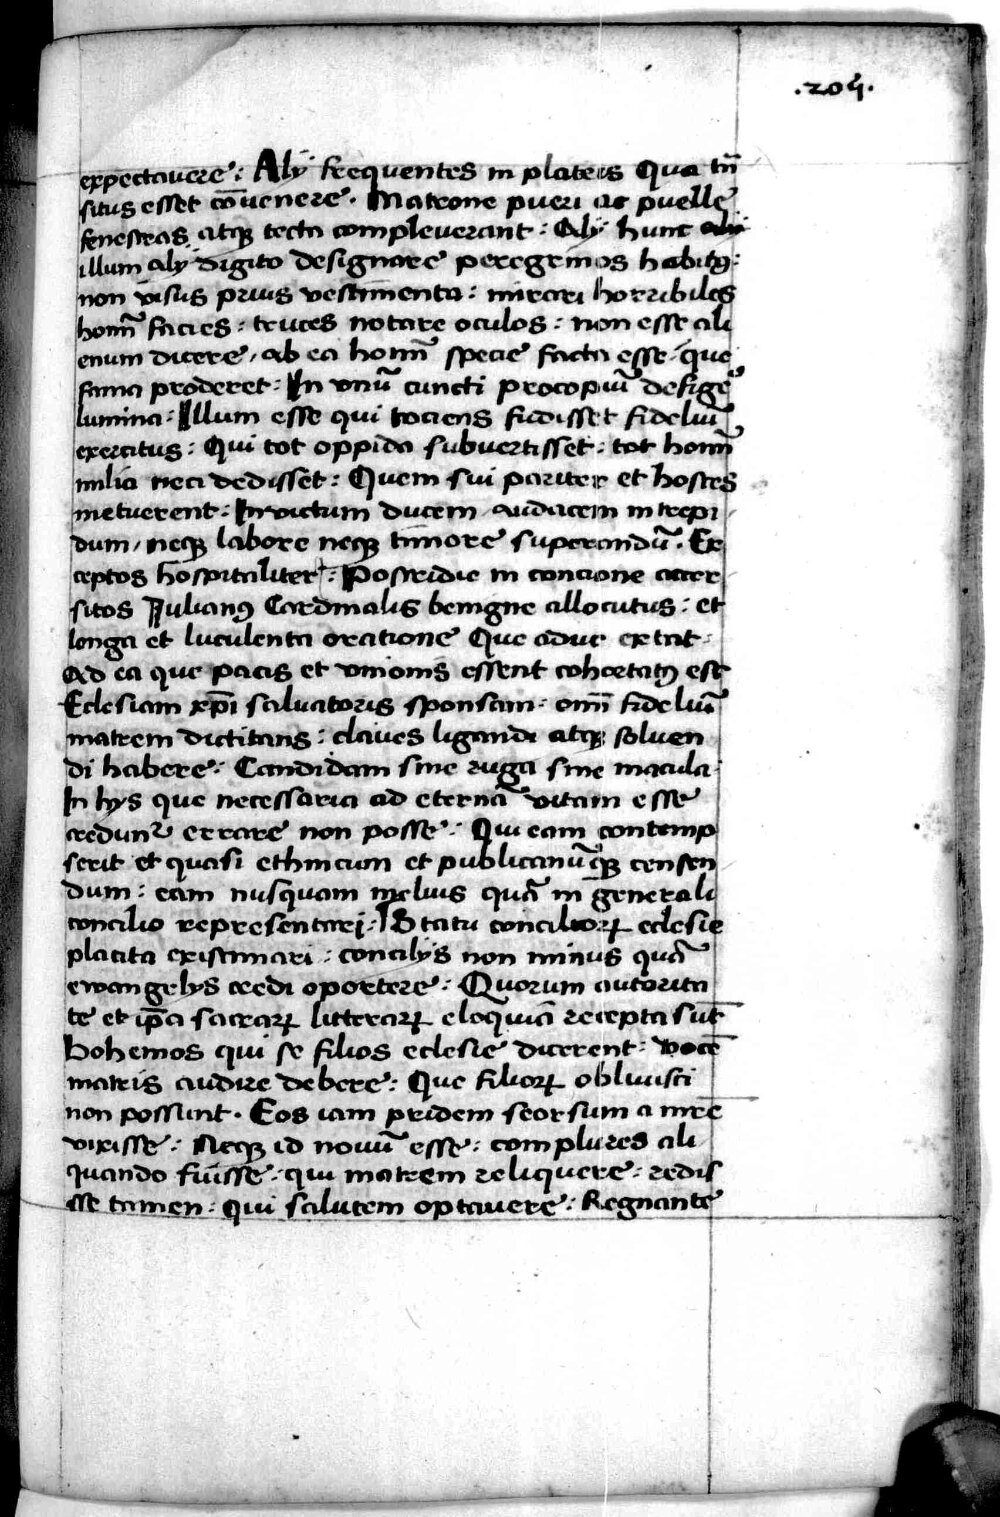 .205.
expectauere : Alÿ frequentes in plateis Qua trā
situs esset cōuenere . Matrone pueri ac puelle
fenestras atqꝫ tecta compleuerant : Alÿ hunc alÿ
illum alÿ digito designare peregrinos habitꝰ :
non visus prius vestimenta : mirari horribiles
homī facies : truces notare oculos : non esse ali
enum dicere / ab ea homī specie facta esse que
fama proderet : In vnū cuncti procopiū defigeꝰ
lumina : Illum esse qui tociens fudisset fideliū
exercitus : Qui tot oppida subuertisset : tot homī
milia neci dedisset : Quem sui pariter et hostes
metuerent : Inuictum ducem audacem intrepi
dum / neqꝫ labore neqꝫ timore superandū . Ex
ceptos hospitaliter : Postridie in concione accer
sitos Iulianꝰ Cardinalis benigne allocutus : et
longa et luculenta oratione Que aduc extat :
Ad ea que pacis et vnionis essent cohortatꝰ est
Eclesiam xp̄i saluatoris sponsam : omī fideliū
matrem dictitans : claues ligandi atqꝫ soluen
di habere : Candidam sine ruga sine macula :
In hÿs que necessaria ad eternā vitam esse
credunt᷑ errare non posse : Qui eam contemp
serit et quasi ethnicum et publicanū qꝫ censen
dum : eam nusquam melius quā in generali
concilio representari : Statu concilioꝝ eclesie
placita existimari : concilÿs non minus quā
ewangelÿs credi oportere : Quorum autorita
te et ip̄a sacraꝝ litteraꝝ eloquia recepta sūt
bohemos qui se filios eclesie dicerent : vocē
matris audire debere : Que filioꝝ obliuisci
non possunt . Eos iam pridem seorsum a mr̄e
vixisse : Neqꝫ id nouū esse : complures ali
quando fuisse : qui matrem reliquere : redis
sse tamen : qui salutem optauere : Regnante